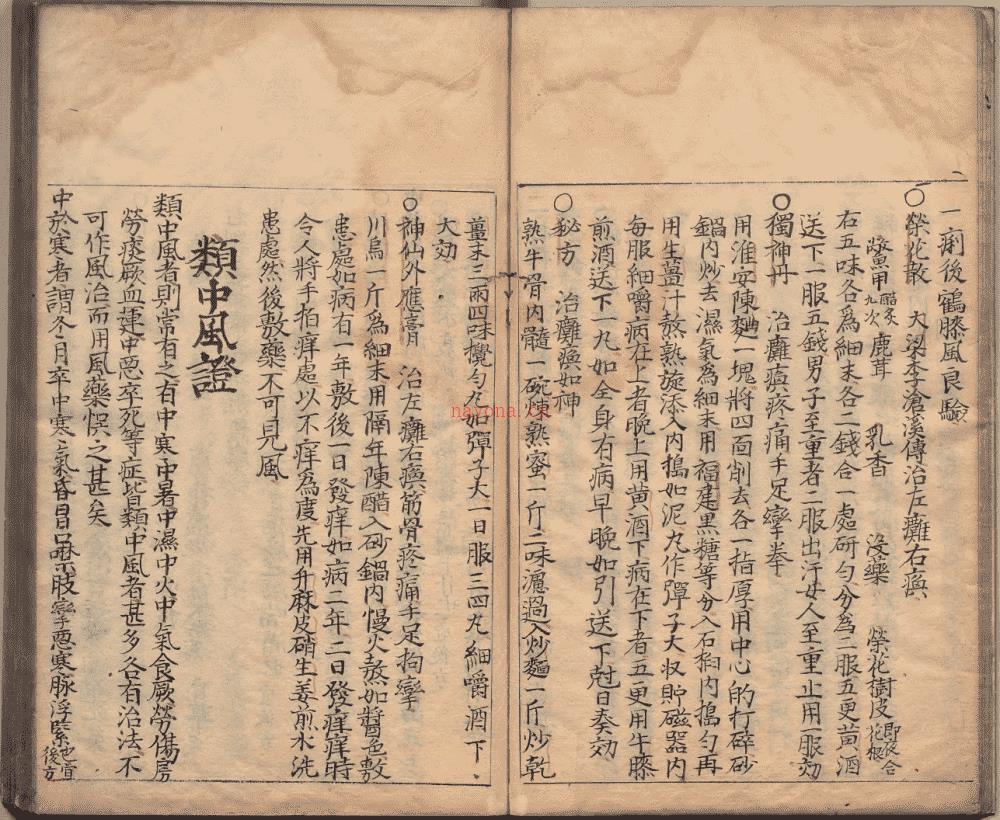 一痢後鶴膝風良驗
○榮花散 大梁李滄溪傳治左癱右瘓
鱉甲醋炙九次 鹿茸 乳香 沒藥 榮花樹皮即夜合花根
右五味各為細末各二錢合一處研勻分為二服五更黄酒
送下一服五錢男子至重者二服出汗女人至重止用一服効
○獨神丹 治癱瘓疼痛手足攣拳
用淮安陳麯一塊將四面削去各一指厚用中心的打碎砂
鍋内炒去濕氣為細末用福建黒糖等分入石臼内搗勻再
用生薑汁熬熟旋添入内搗如泥丸作彈子大収貯磁器内
每服細嚼病在上者晚上用黄酒下病在下者五更用牛膝
煎酒送下一丸如全身有病早晚如引送下尅日奏効
○秘方 治癱瘓如神
熟牛骨内髓一碗煉熟蜜一斤二味濾過入炒麵一斤炒乾
薑末三兩四味攪勻丸如彈子大一日服三四丸細嚼酒下
大効
○神仙外應膏 治左癱右瘓筋骨疼痛手足拘攣
川烏一斤為細末用隔年陳醋入砂鍋内慢火熬如醬色敷
患處如病有一年敷後一日發痒如病二年二日發痒痒時
令人將手拍痒處以不痒為度先用升麻皮硝生姜煎水洗
患處然後敷藥不可見風
類中風證
類中風者則常有之有中寒中暑中濕中火中氣食厥勞傷房
勞痰厥血運中惡卒死等症皆類中風者甚多各有治法不
可作風治而用風藥悮之甚矣
中於寒者謂冬月卒中寒氣昏冒口噤肢攣惡寒脉浮緊也宜後方
nayona.cn